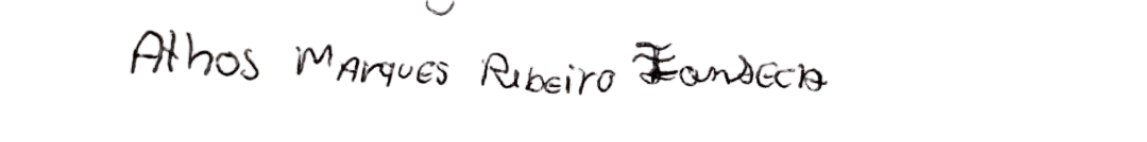 Athos Marques Ribeiro Fonseca